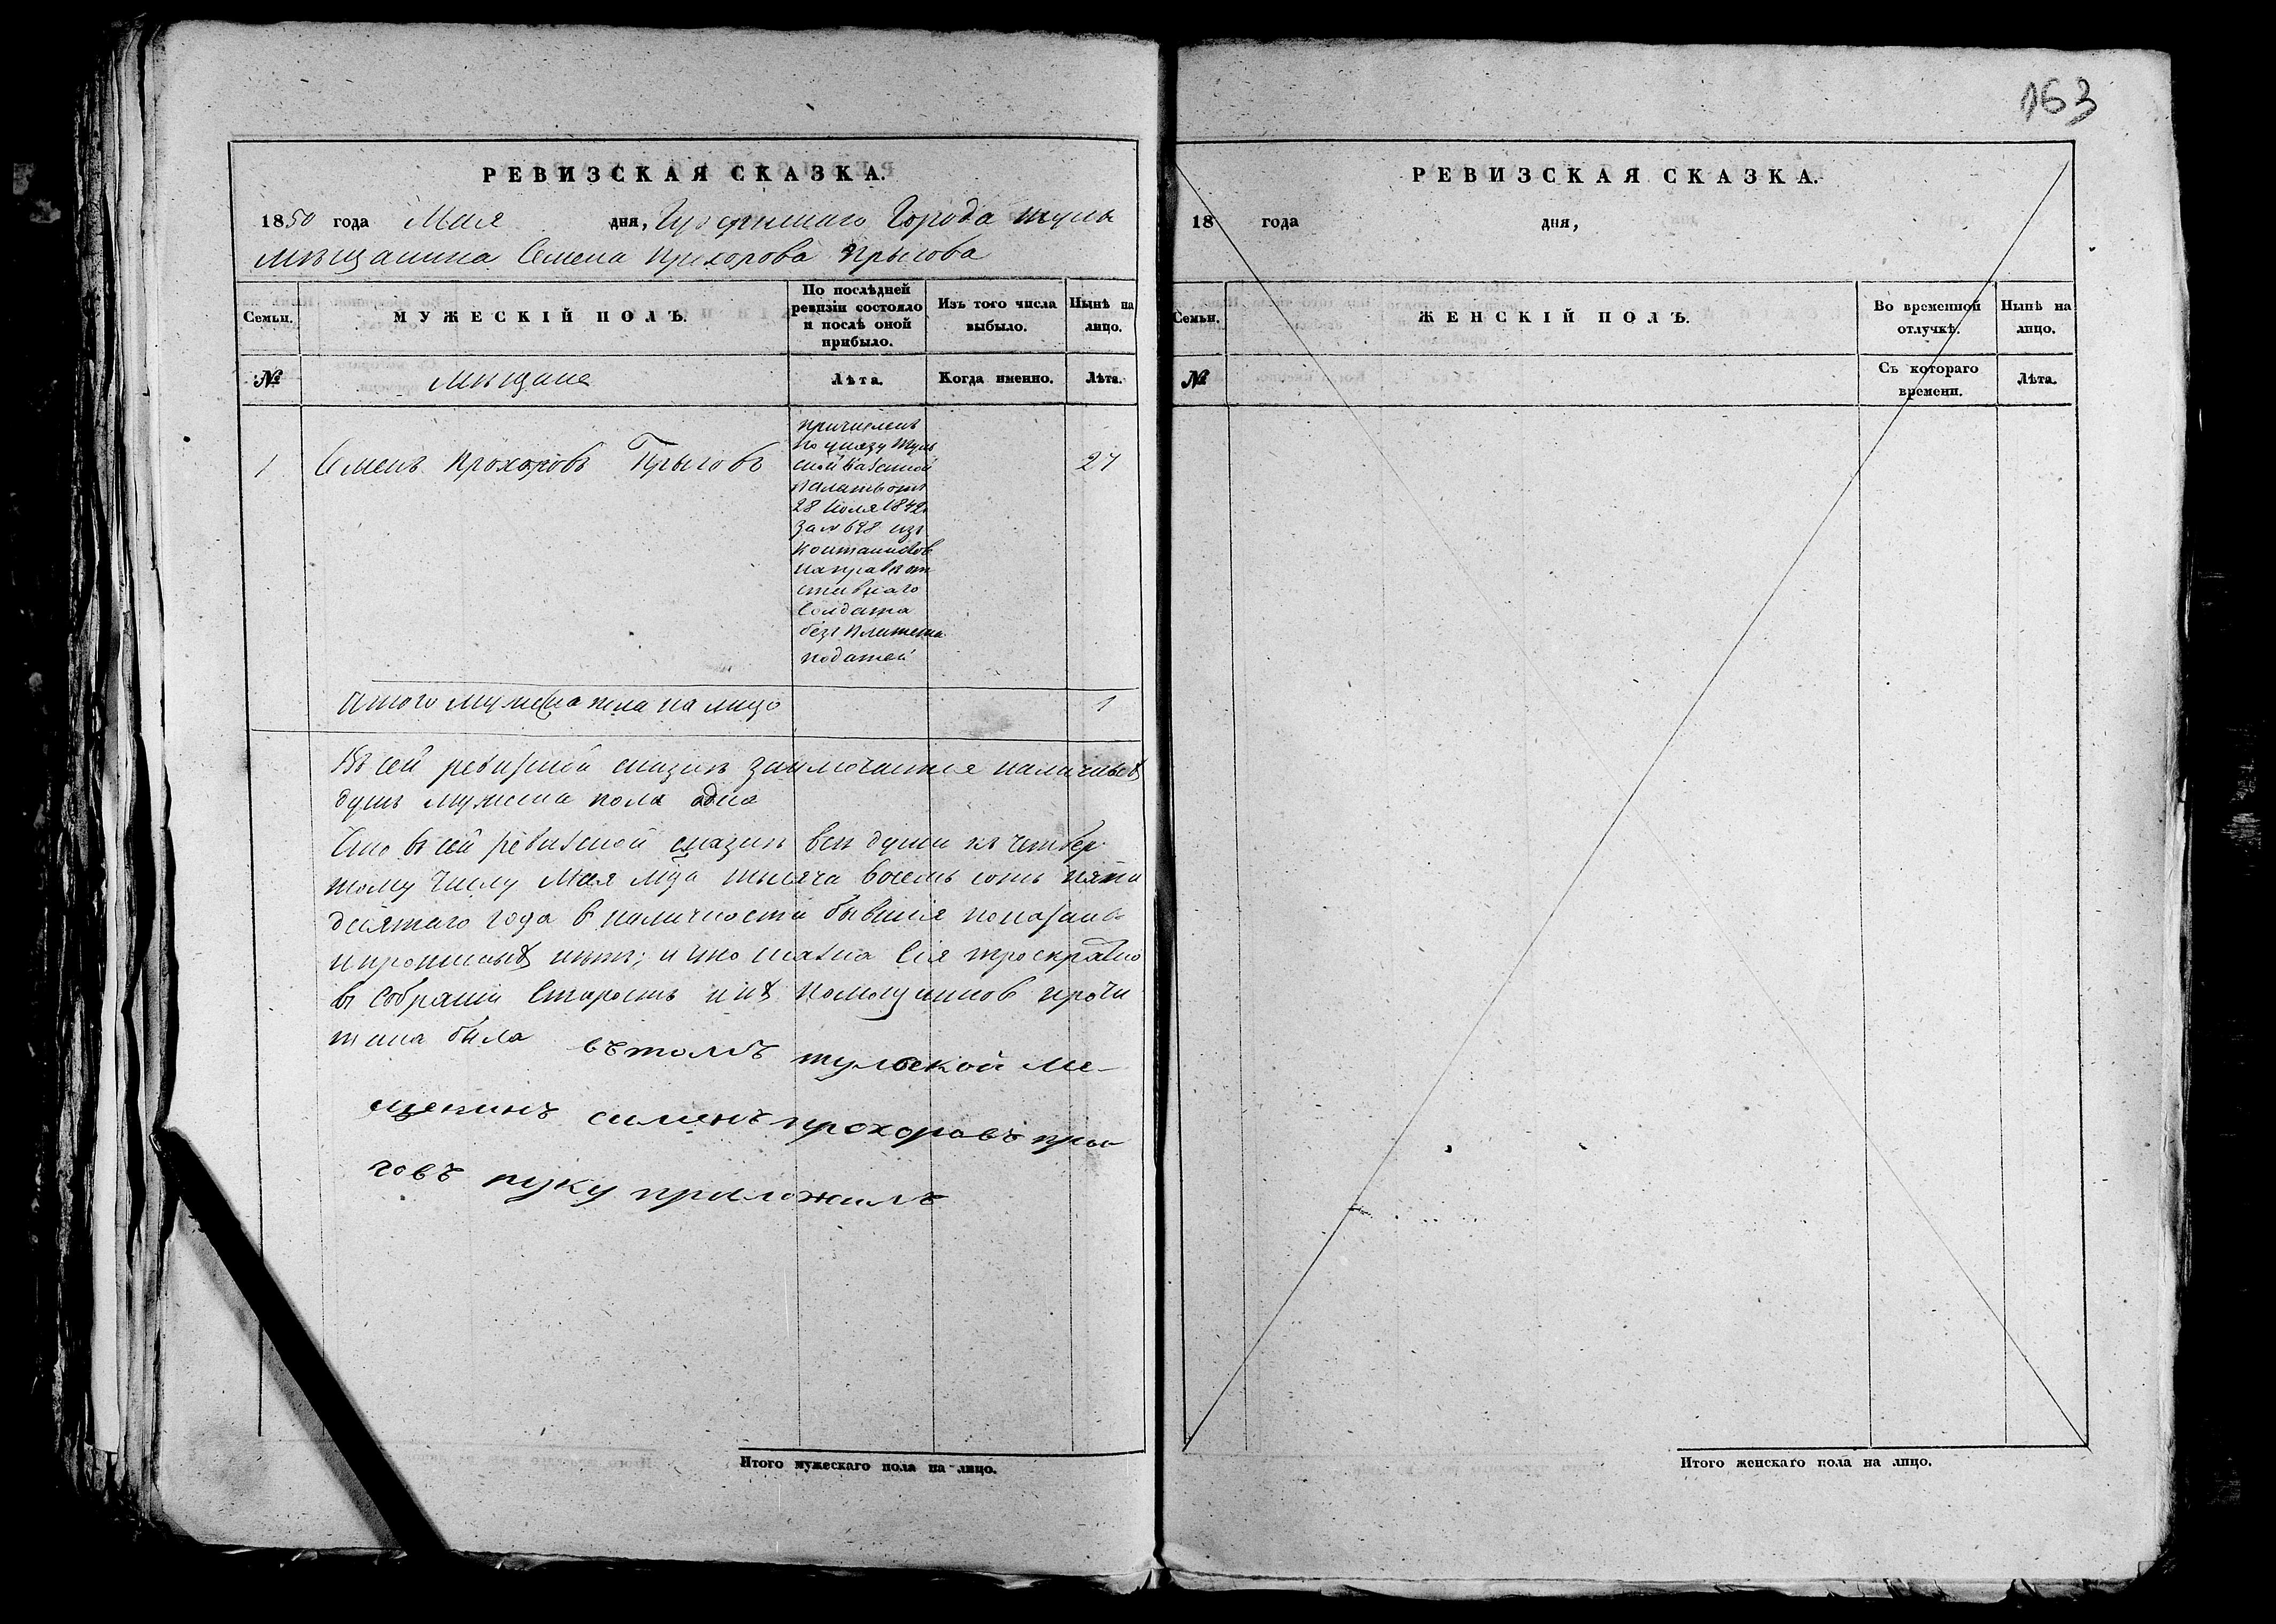 163
РЕВИЗСКАЯ СКАЗКА.
1850 года Мая дня, Губернскаго Города Тулы
мѣщанина Семена Прохорова Прыгова
Семьи.
МУЖЕСКІЙ ПОЛЪ.
По послѣдней ревизіи состояло и послѣ оной прибыло.
Изъ того числа выбыло.
Нынѣ на лицо.
№
мѣщане
Лѣта.
Когда именно.
Лѣта.
1 Семенъ Прохоровъ Прыговъ 27
причисленъ
по указу Туль
ской Казенной
палаты отъ
28 Июля 1842
за № 648 изъ
кантонистов
на правѣ от
ставнаго
Солдата
безъ платежа
податей
Итого мужеска пола на лицо 1
Въ сей ревизской сказкѣ заключается наличных
душъ мужеска пола одна
Что в сей ревизской сказкѣ всѣ души къ четвер
тому числу Мая мца тысяча восемь сотъ пяти
десятаго года в наличности бывшія показаны
и прописных нѣтъ; и что сказка Сія троекратно
въ Собрании Старостъ и их помощников прочи
тана была въ томъ тульской ме-
щенинъ сименъ прохоровъ пры-
говъ руку приложилъ
Итого мужескаго пола на лицо.
РЕВИЗСКАЯ СКАЗКА.
18 года дня,
Семьи.
ЖЕНСКІЙ ПОЛЪ.
Во временной отлучкѣ.
Нынѣ на лицо.
№
Съ котораго времени.
Лѣта.
Итого женскаго пола на лицо.